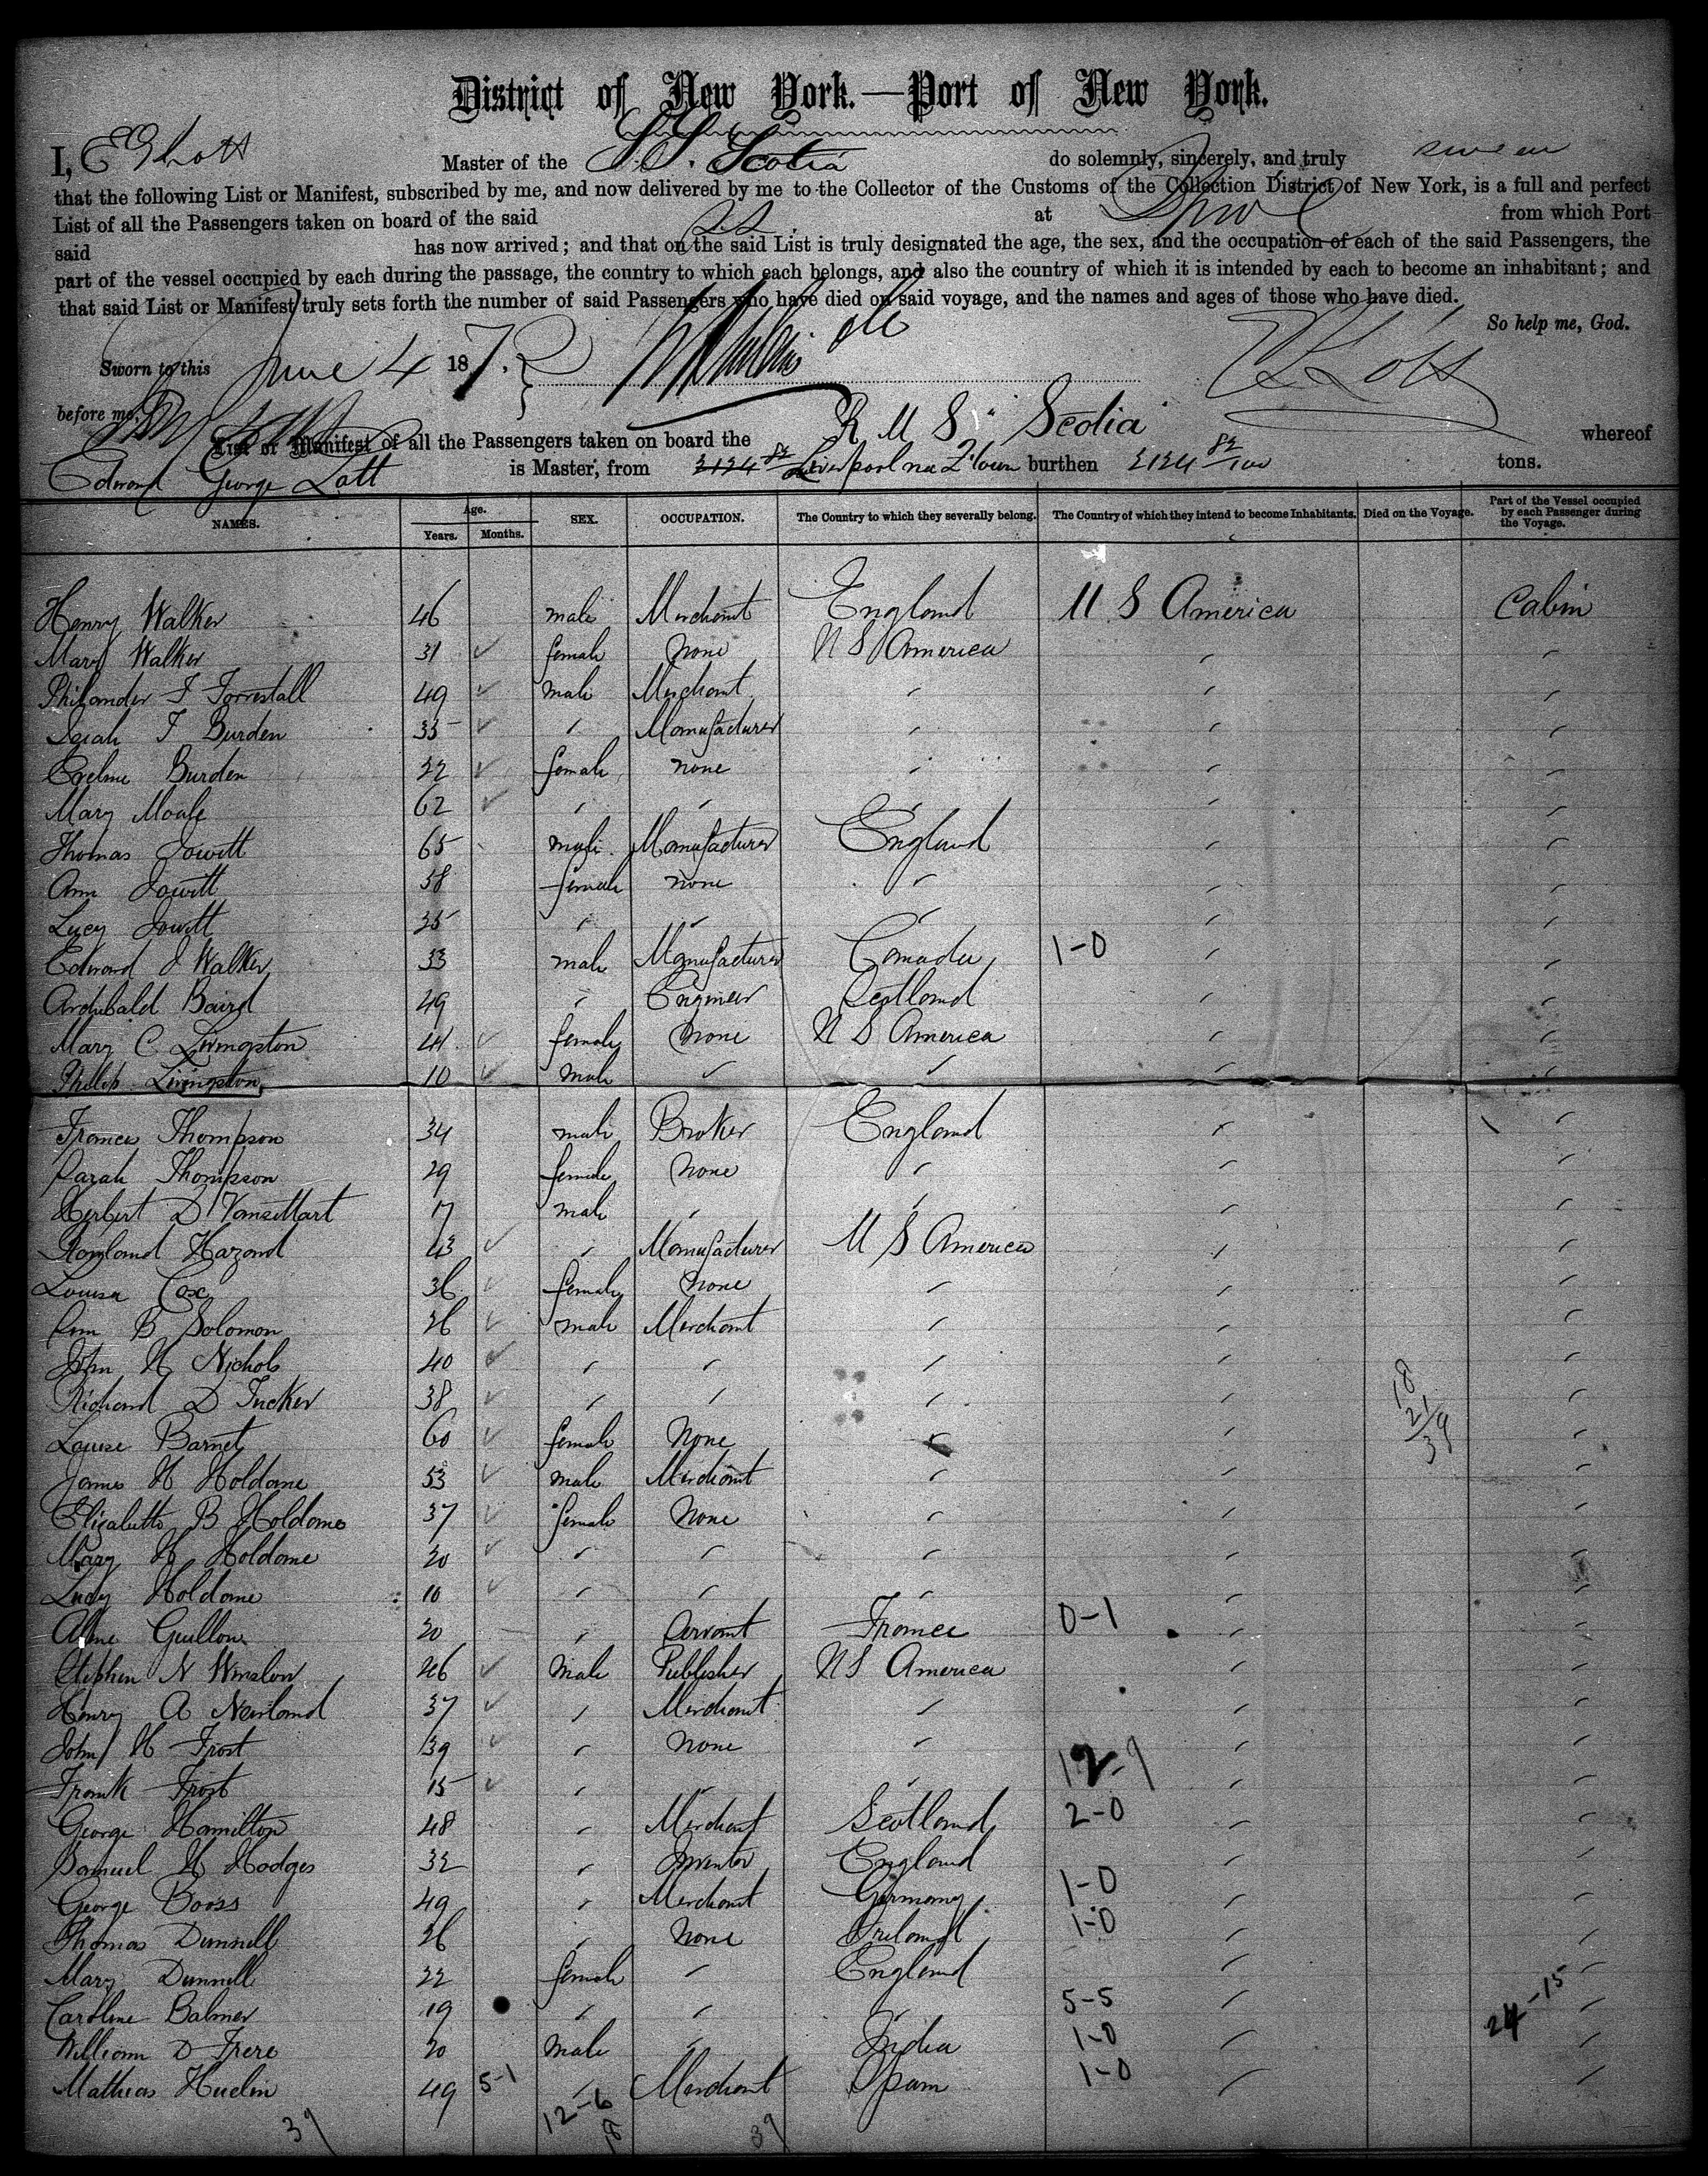 District of New York.—Port of New York.
I, E G Lott Master of the S.S. Scotia do solemnly, sincerely, and truly swear
that the following List or Manifest, subscribed by me, and now delivered by me to the Collector of the Customs of the Collection District of New York, is a full and perfect
List of all the Passengers taken on board of the said S.S. at Lpool from which Port
said has now arrived; and that on the said List is truly designated the age, the sex, and the occupation of each of the said Passengers, the
part of the vessel occupied by each during the passage, the country to which each belongs, and also the country of which it is intended by each to become an inhabitant; and
that said List or Manifest truly sets forth the number of said Passengers who have died on said voyage, and the names and ages of those who have died.
So help me, God.
Sworn to this June 4 187 E G Lott
before me,
List or Manifest of all the Passengers taken on board the R M S "Scotia" whereof
Edward George Lott is Master, from Liverpool via Q'town burthen 2124 82/100 tons.
NAMES. Age. Years. Months. SEX. OCCUPATION. The Country to which they severally belong. The Country of which they intend to become Inhabitants. Died on the Voyage. Part of the Vessel occupied by each Passenger during the Voyage.
Henry Walker 46 male Merchant England U S America Cabin
Mary Walker 31 female None U S America
Philander F Forrestall 49 male Merchant
Isiah F Burden 35 Manufacturer
Eveline Burden 32 female none
Mary Moale 62
Thomas Jowitt 65 male Manufacturer England
Ann Jowitt 58 female none
Lucy Jowitt 25
Edward J Walker 33 male Manufacturer Canada 1-0
Archibald Baird 49 Engineer Scotland
Mary C Livingston 41 female None U S America
Philip Livingston 10 male
Frances Thompson 34 male Broker England
Sarah Thompson 29 female None
Herbert D Vansittart 17 male
Rowland Hazard 43 Manufacturer U S America
Louisa Cox 36 female None
Sim B Solomon 26 male Merchant
John H Nichols 40
Richard D Tucker 38
Louise Barnet 60 female None
James H Holdame 53 male Merchant
Elizabeth B Holdame 37 female None
Mary H Holdame 20
Lucy Holdame 10
Aline Guillou 20 Servant France 0-1
Stephen N Winslow 46 Male Publisher U S America
Henry A Newland 37 Merchant
John H Frost 39 None
Frank Frost 15 12-9
George Hamilton 48 Merchant Scotland 2-0
Samuel H Hodges 32 Inventor England
George Booss 49 Merchant Germany 1-0
Thomas Dunnell 26 None Ireland 1-0
Mary Dunnell 22 female England
Caroline Balmer 19 5-5 24-15
William D Frere 20 Male India 1-0
Mathias Huelin 49 5-1 Merchant Spain 1-0
39 12-6 18 39
18
21
39